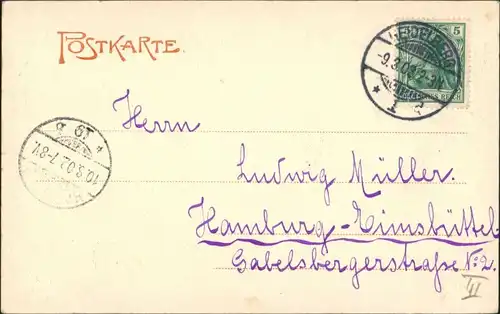 POSTKARTE.
5
-9.3.02.
Herrn
10.3.02.7-8V.
Ludwig Müller.
Hamburg-Eimsbüttel
Gabelsbergerstraße No. 2.
III